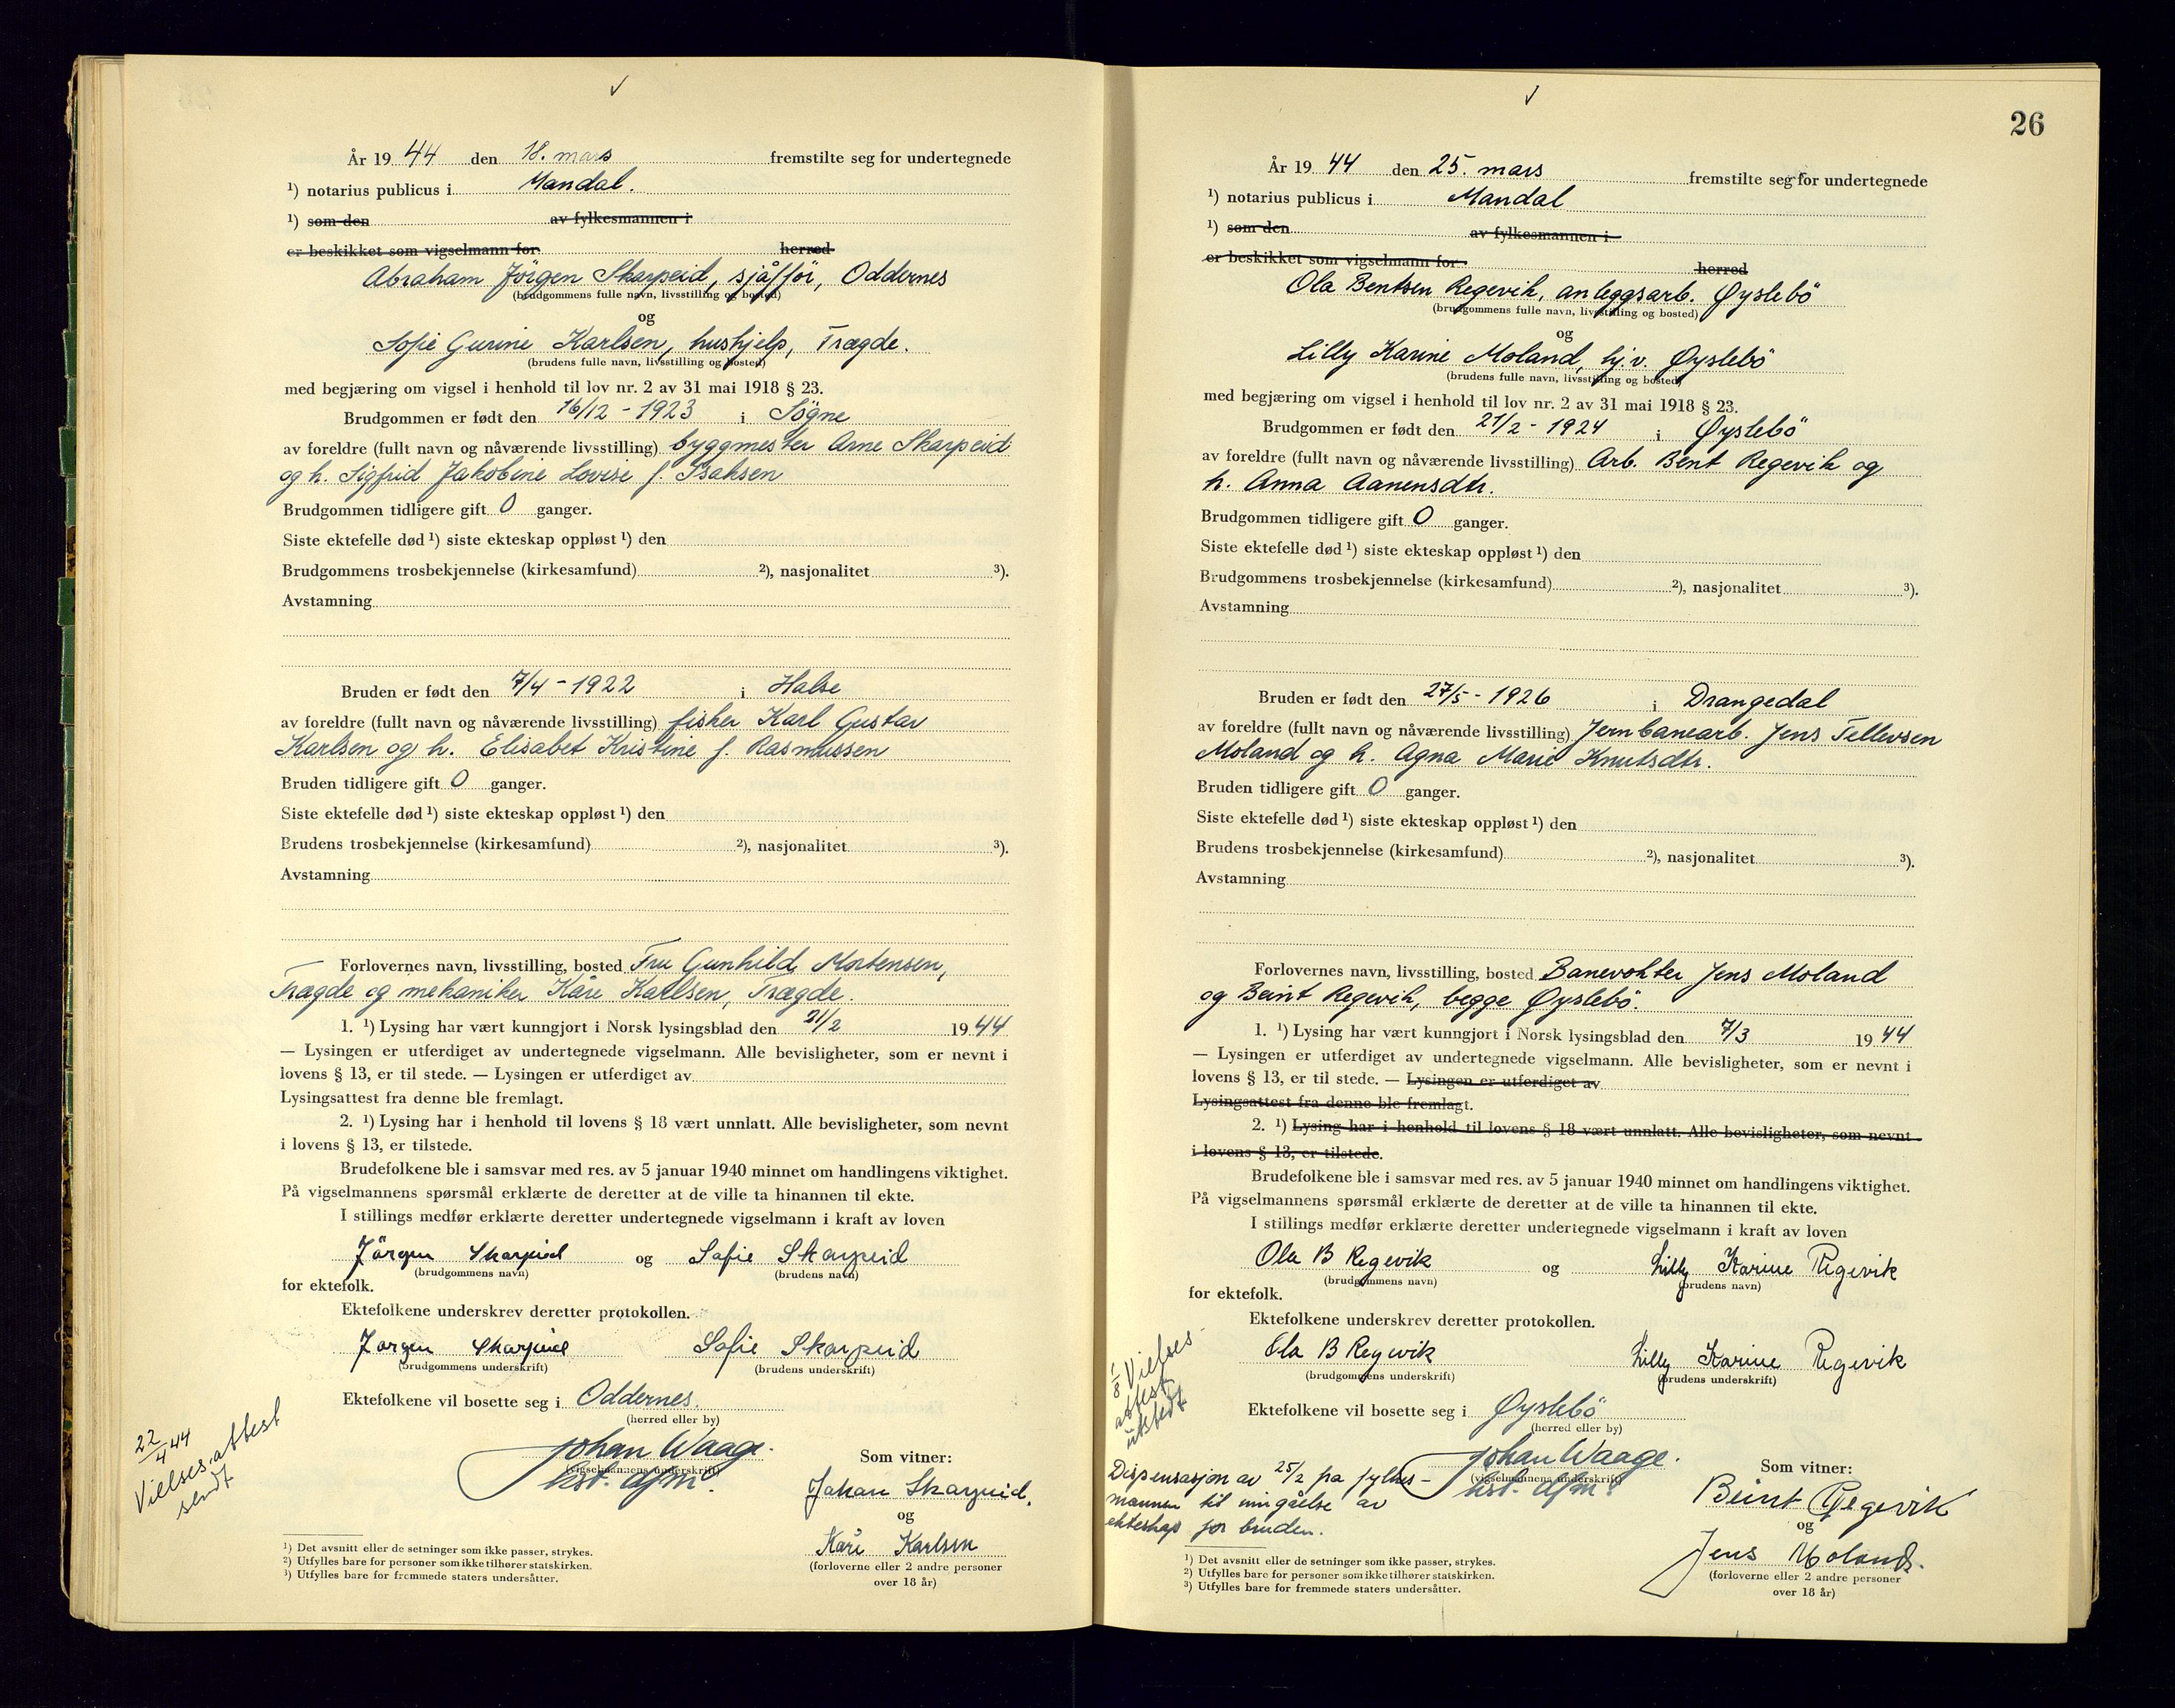 År 19 44 den 18. mars fremstilte seg for undertegnede
¹) notarius publicus i Mandal.
¹) som den av fylkesmannen i
er beskikket som vigselmann for herred
Abraham Jörgen Skarpeid, sjåfför, Oddernes
(brudgommens fulle navn, livsstilling og bosted)
og
Sofie Gurine Karlsen, hushjelp, Trægde.
(brudens fulle navn, livsstilling og bosted)
med begjæring om vigsel i henhold til lov nr. 2 av 31 mai 1918 § 23.
Brudgommen er født den 16/12 - 1923 i Sögne
av foreldre (fullt navn og nåværende livsstilling) byggmester Arne Skarpeid
og h. Sigfrid Jakobine Lovise f. Isaksen
Brudgommen tidligere gift 0 ganger.
Siste ektefelle død ¹) siste ekteskap oppløst ¹) den
Brudgommens trosbekjennelse (kirkesamfund) ²), nasjonalitet ³).
Avstamning
Bruden er født den 7/4 - 1922 i Halse
av foreldre (fullt navn og nåværende livsstilling) fisker Karl Gustav
Karlsen og h. Elisabet Kristine f. Rasmussen
Bruden tidligere gift 0 ganger.
Siste ektefelle død ¹) siste ekteskap oppløst ¹) den
Brudens trosbekjennelse (kirkesamfund) ²), nasjonalitet ³).
Avstamning
Forlovernes navn, livsstilling, bosted Fru Gunhild Mortensen,
Trægde og mekaniker Kåre Karlsen, Trægde.
1. ¹) Lysing har vært kunngjort i Norsk lysingsblad den 21/2 19 44
— Lysingen er utferdiget av undertegnede vigselmann. Alle bevisligheter, som er nevnt i
lovens § 13, er til stede. — Lysingen er utferdiget av
Lysingsattest fra denne ble fremlagt.
2. ¹) Lysing har i henhold til lovens § 18 vært unnlatt. Alle bevisligheter, som nevnt
i lovens § 13, er tilstede.
Brudefolkene ble i samsvar med res. av 5 januar 1940 minnet om handlingens viktighet.
På vigselmannens spørsmål erklærte de deretter at de ville ta hinannen til ekte.
I stillings medfør erklærte deretter undertegnede vigselmann i kraft av loven
Jörgen Skarpeid og Sofie Skarpeid
(brudgommens navn) (brudens navn)
for ektefolk.
Ektefolkene underskrev deretter protokollen.
Jørgen Skarpeid Sofie Skarpeid
(brudgommens underskrift) (brudens underskrift)
Ektefolkene vil bosette seg i Oddernes.
(herred eller by)
22/4 44
Vielsesattest
sendt
Johan Waage.
(vigselmannens underskrift)
kst. dfm.
Som vitner:
Johan Skarpeid.
og
Kåre Karlsen
(forloverne eller 2 andre personer
over 18 år)
¹) Det avsnitt eller de setninger som ikke passer, strykes.
²) Utfylles bare for personer som ikke tilhører statskirken.
³) Utfylles bare for fremmede staters undersåtter.
26
År 19 44 den 25. mars fremstilte seg for undertegnede
¹) notarius publicus i Mandal
¹) som den av fylkesmannen i
er beskikket som vigselmann for herred
Ola Bentsen Regevik, anleggsarb. Øyslebö
(brudgommens fulle navn, livsstilling og bosted)
og
Lilly Karine Moland, hj.v. Øyslebö
(brudens fulle navn, livsstilling og bosted)
med begjæring om vigsel i henhold til lov nr. 2 av 31 mai 1918 § 23.
Brudgommen er født den 21/2 - 1924 i Øyslebö
av foreldre (fullt navn og nåværende livsstilling) Arb. Bent Regevik og
h. Anna Aanensdtr.
Brudgommen tidligere gift 0 ganger.
Siste ektefelle død ¹) siste ekteskap oppløst ¹) den
Brudgommens trosbekjennelse (kirkesamfund) ²), nasjonalitet ³).
Avstamning
Bruden er født den 27/5 - 1926 i Drangedal
av foreldre (fullt navn og nåværende livsstilling) Jernbanearb. Jens Tellevsen
Moland og h. Agna Marie Knutsdtr.
Bruden tidligere gift 0 ganger.
Siste ektefelle død ¹) siste ekteskap oppløst ¹) den
Brudens trosbekjennelse (kirkesamfund) ²), nasjonalitet ³).
Avstamning
Forlovernes navn, livsstilling, bosted Banevokter Jens Moland
og Beint Regevik, begge Øyslebö.
1. ¹) Lysing har vært kunngjort i Norsk lysingsblad den 7/3 19 44
— Lysingen er utferdiget av undertegnede vigselmann. Alle bevisligheter, som er nevnt i
lovens § 13, er til stede. — Lysingen er utferdiget av
Lysingsattest fra denne ble fremlagt.
2. ¹) Lysing har i henhold til lovens § 18 vært unnlatt. Alle bevisligheter, som nevnt
i lovens § 13, er tilstede.
Brudefolkene ble i samsvar med res. av 5 januar 1940 minnet om handlingens viktighet.
På vigselmannens spørsmål erklærte de deretter at de ville ta hinannen til ekte.
I stillings medfør erklærte deretter undertegnede vigselmann i kraft av loven
Ola B Regevik og Lilly Karine Regevik
(brudgommens navn) (brudens navn)
for ektefolk.
Ektefolkene underskrev deretter protokollen.
Ola B Regevik Lilly Karine Regevik
(brudgommens underskrift) (brudens underskrift)
Ektefolkene vil bosette seg i Øyslebö
(herred eller by)
1/8 Vielses-
attest
utstedt
Dispensasjon av 25/2 fra fylkes-
mannen til inngåelse av
ekteskap for bruden.
Johan Waage.
(vigselmannens underskrift)
kst. dfm.
Som vitner:
Beint Regevik
og
Jens Moland.
(forloverne eller 2 andre personer
over 18 år)
¹) Det avsnitt eller de setninger som ikke passer, strykes.
²) Utfylles bare for personer som ikke tilhører statskirken.
³) Utfylles bare for fremmede staters undersåtter.